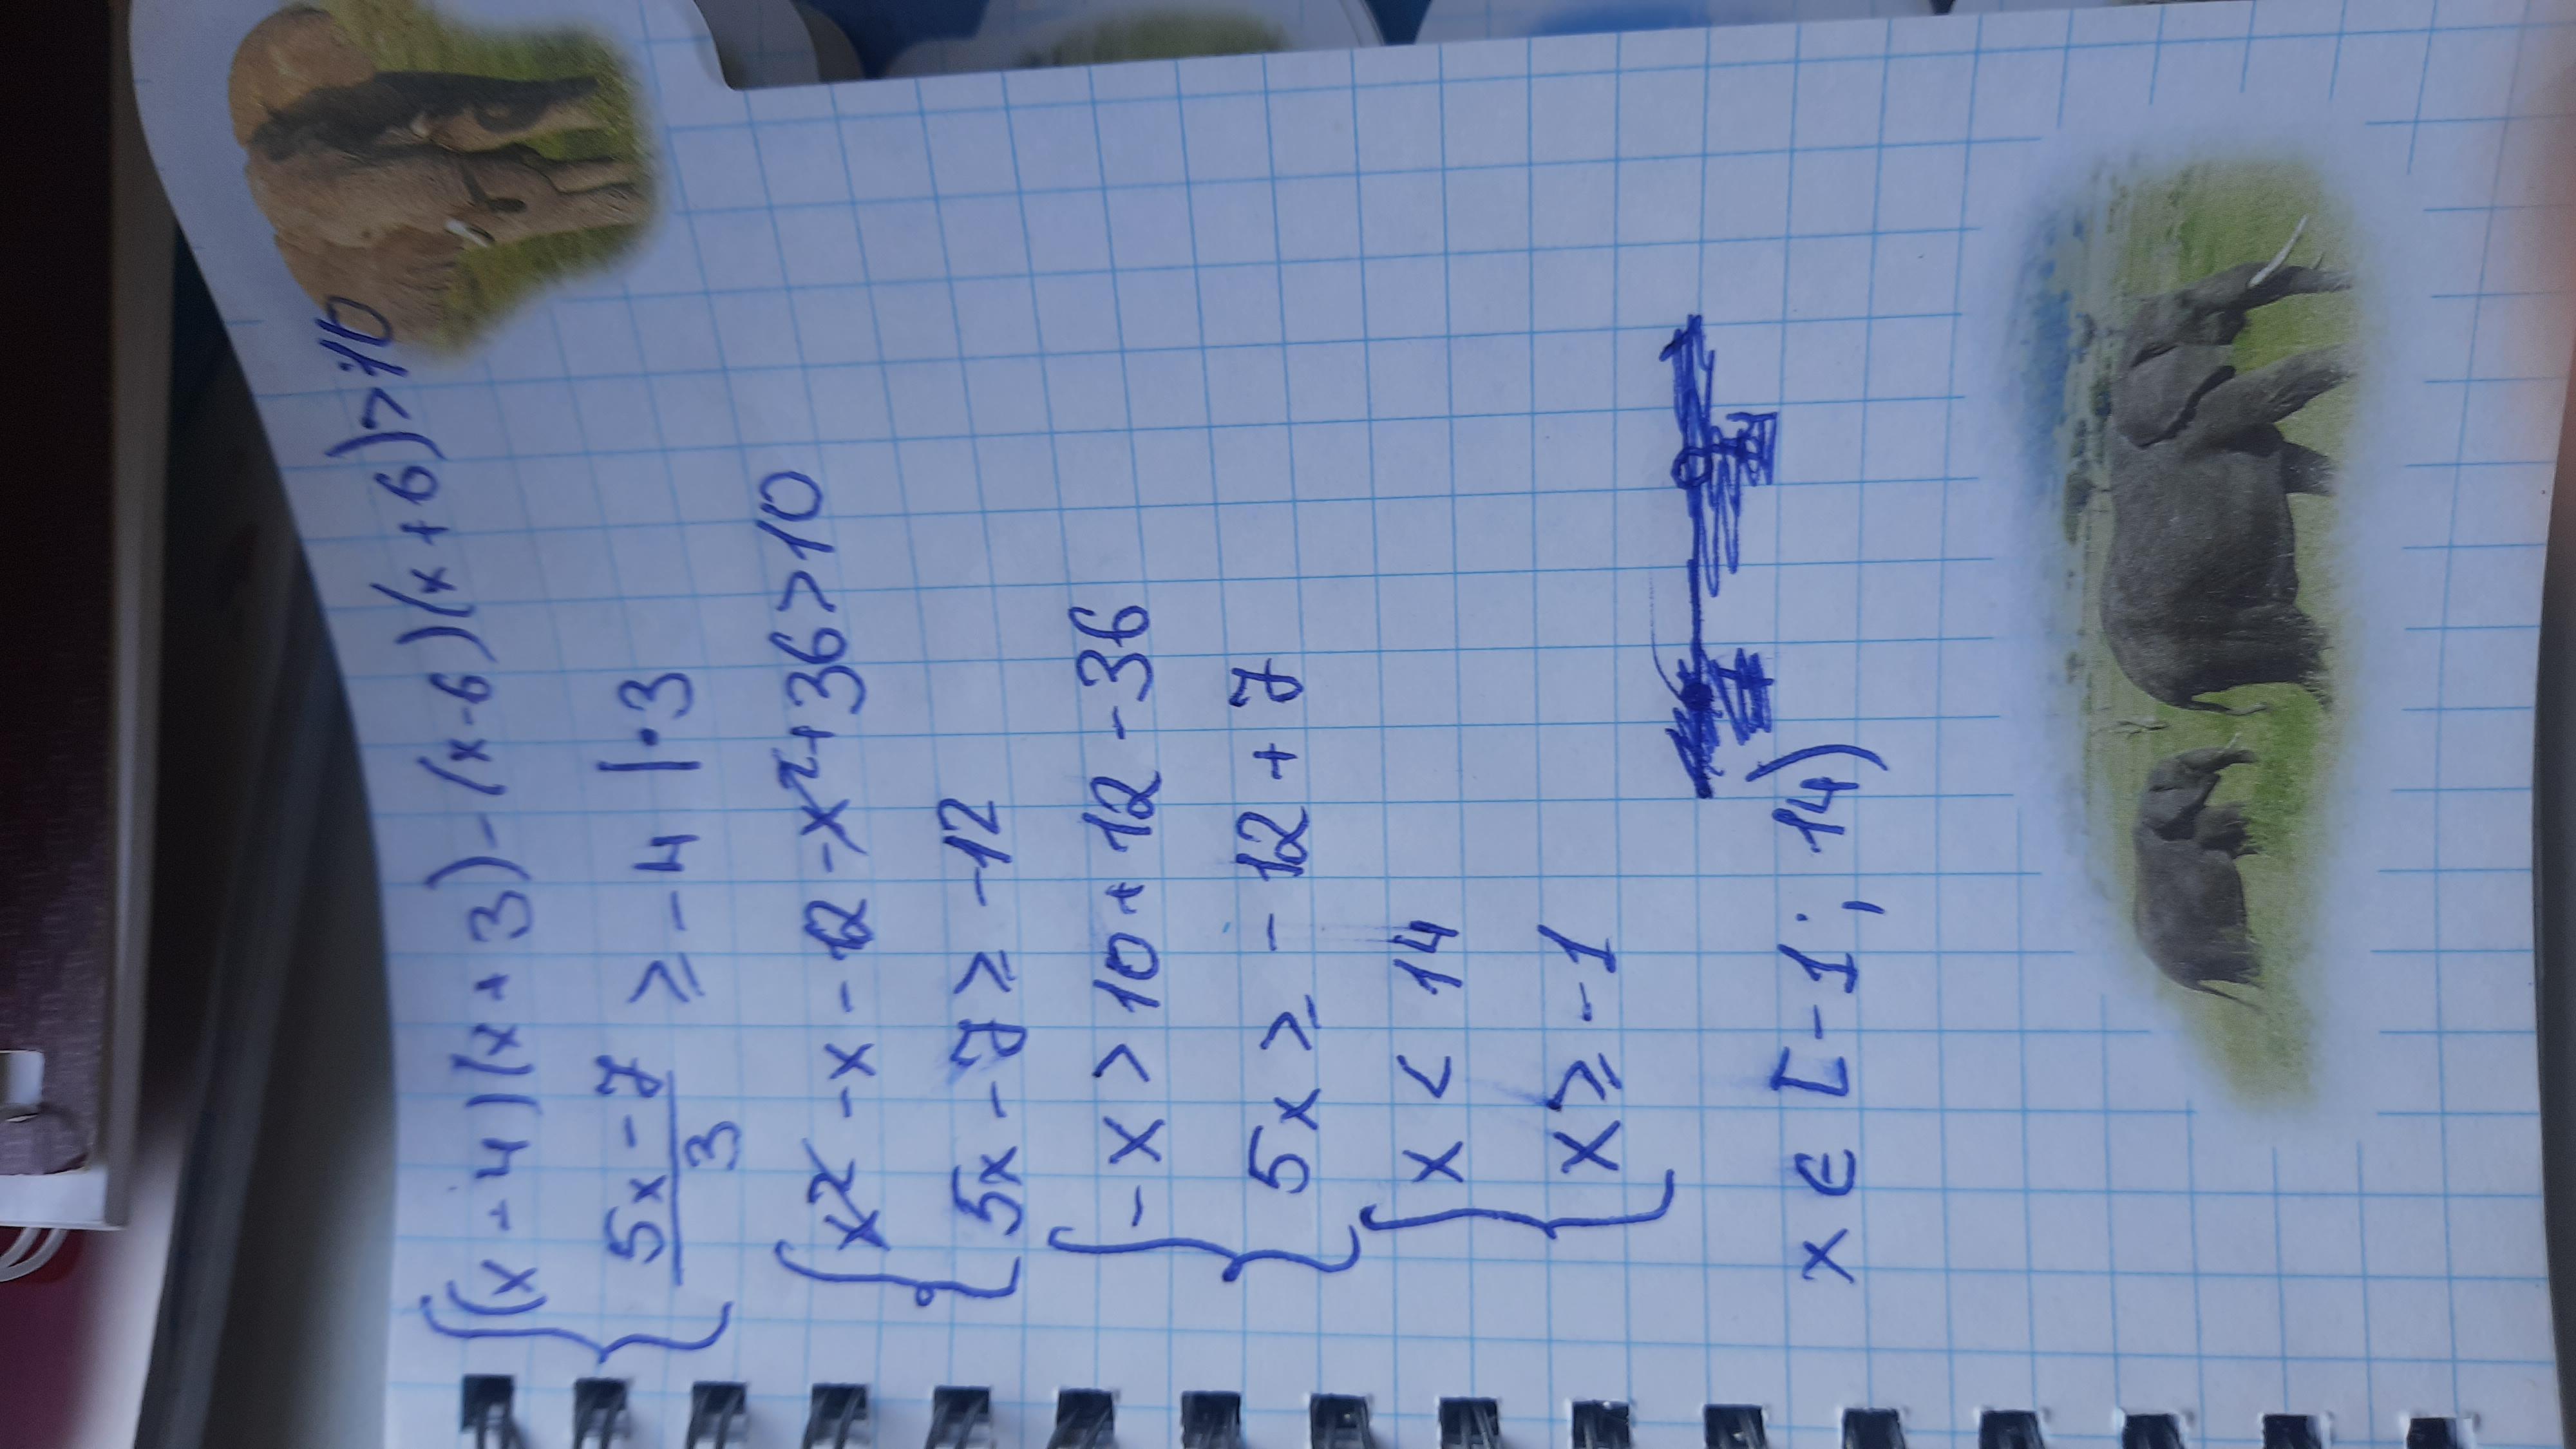 (x-4)(x+3)-(x-6)(x+6)>10
5x-7/3 ≥ -4 |·3
x²-x-12-x²+36>10
5x-7≥-12
-x>10+12-36
5x≥-12+7
x<14
x≥-1
x∈[-1;14)